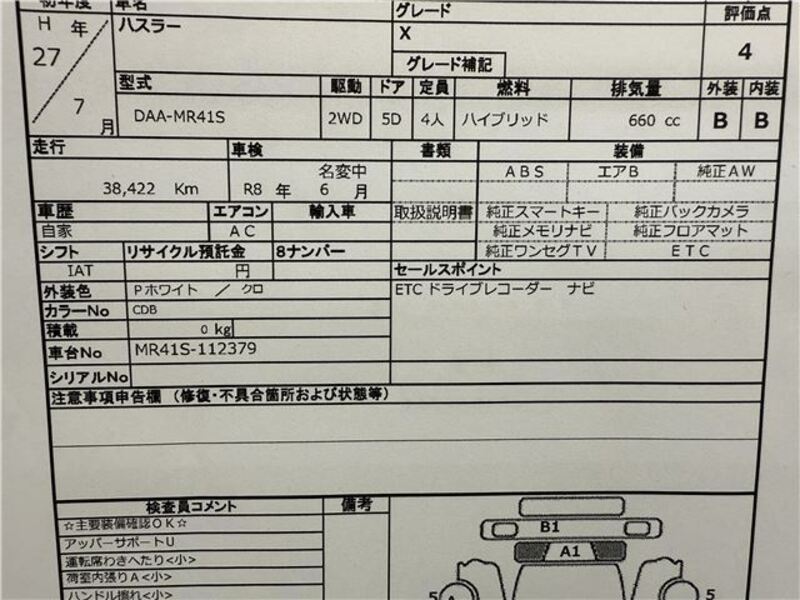 初年度 車名 グレード 評価点
H 年 ハスラー X 4
27 グレード補記
7 月
型式 駆動 ドア 定員 燃料 排気量 外装 内装
DAA-MR41S 2WD 5D 4人 ハイブリッド 660 cc B B
走行 車検 書類 装備
名変中 ABS エアB 純正AW
38,422 Km R8 年 6 月
車歴 エアコン 輸入車 取扱説明書 純正スマートキー 純正バックカメラ
自家 AC 純正メモリナビ 純正フロアマット
シフト リサイクル預託金 8ナンバー 純正ワンセグTV ETC
IAT 円 セールスポイント
外装色 Pホワイト ／ クロ ETC ドライブレコーダー ナビ
カラーNo CDB
積載 0 kg
車台No MR41S-112379
シリアルNo
注意事項申告欄 （修復・不具合箇所および状態等）
検査員コメント 備考
☆主要装備確認OK☆ B1
アッパーサポートU A1
運転席わきへたり<小>
荷室内張りA<小>
ハンドル擦れ<小> 5 5